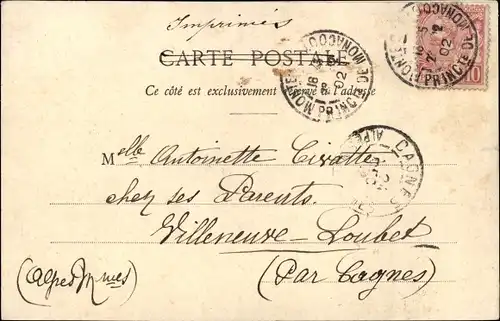 Imprimés
CARTE POSTALE
Ce côté est exclusivement réservé à l'adresse
MONTE
PRINCIP. DE MONACO
18
02
10
MONTE
PRINCIP. DE MONACO
18
02
CAGNES
ALP
Melle Antoinette Civatte
chez ses Parents.
Villeneuve-Loubet
(Alpes Mmes)
(Par Cagnes)